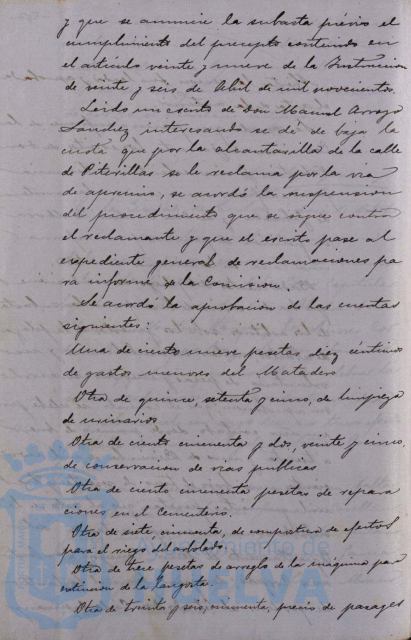 y que se anuncie la subasta prévio el
cumplimiento del precepto contenido en
el artículo veinte y nueve de la Instruccion
de veinte y seis de Abril de mil novecientos.
Leido un escrito de Don Manuel Arroyo
Sanchez interesando se dé de baja la
cuota que por la alcantarilla de la calle
de Piterillas se le reclama por la via
de apremio, se acordó la suspension
del procedimiento que se sigue contra
el reclamante y que el escrito pase al
expediente general de reclamaciones pa
ra informe de la Comision.
Se acordó la aprobacion de las cuentas
siguientes:
Una de ciento nueve pesetas, diez céntimos
de gastos menores del Matadero
Otra de quince, setenta y cinco, de limpieza
de urinarios
Otra de ciento cincuenta y dos, veinte y cinco,
de conservacion de vias públicas
Otra de ciento cincuenta pesetas de repara
ciones en el Cementerio.
Otra de siete, cincuenta, de compostura de efectos
para el riego del arbolado.
Otra de trece pesetas de arreglo de la máquina para
extincion de la langosta.
Otra de treinta y seis, cincuenta, precio de pasages
Ayuntamiento de
HUELVA